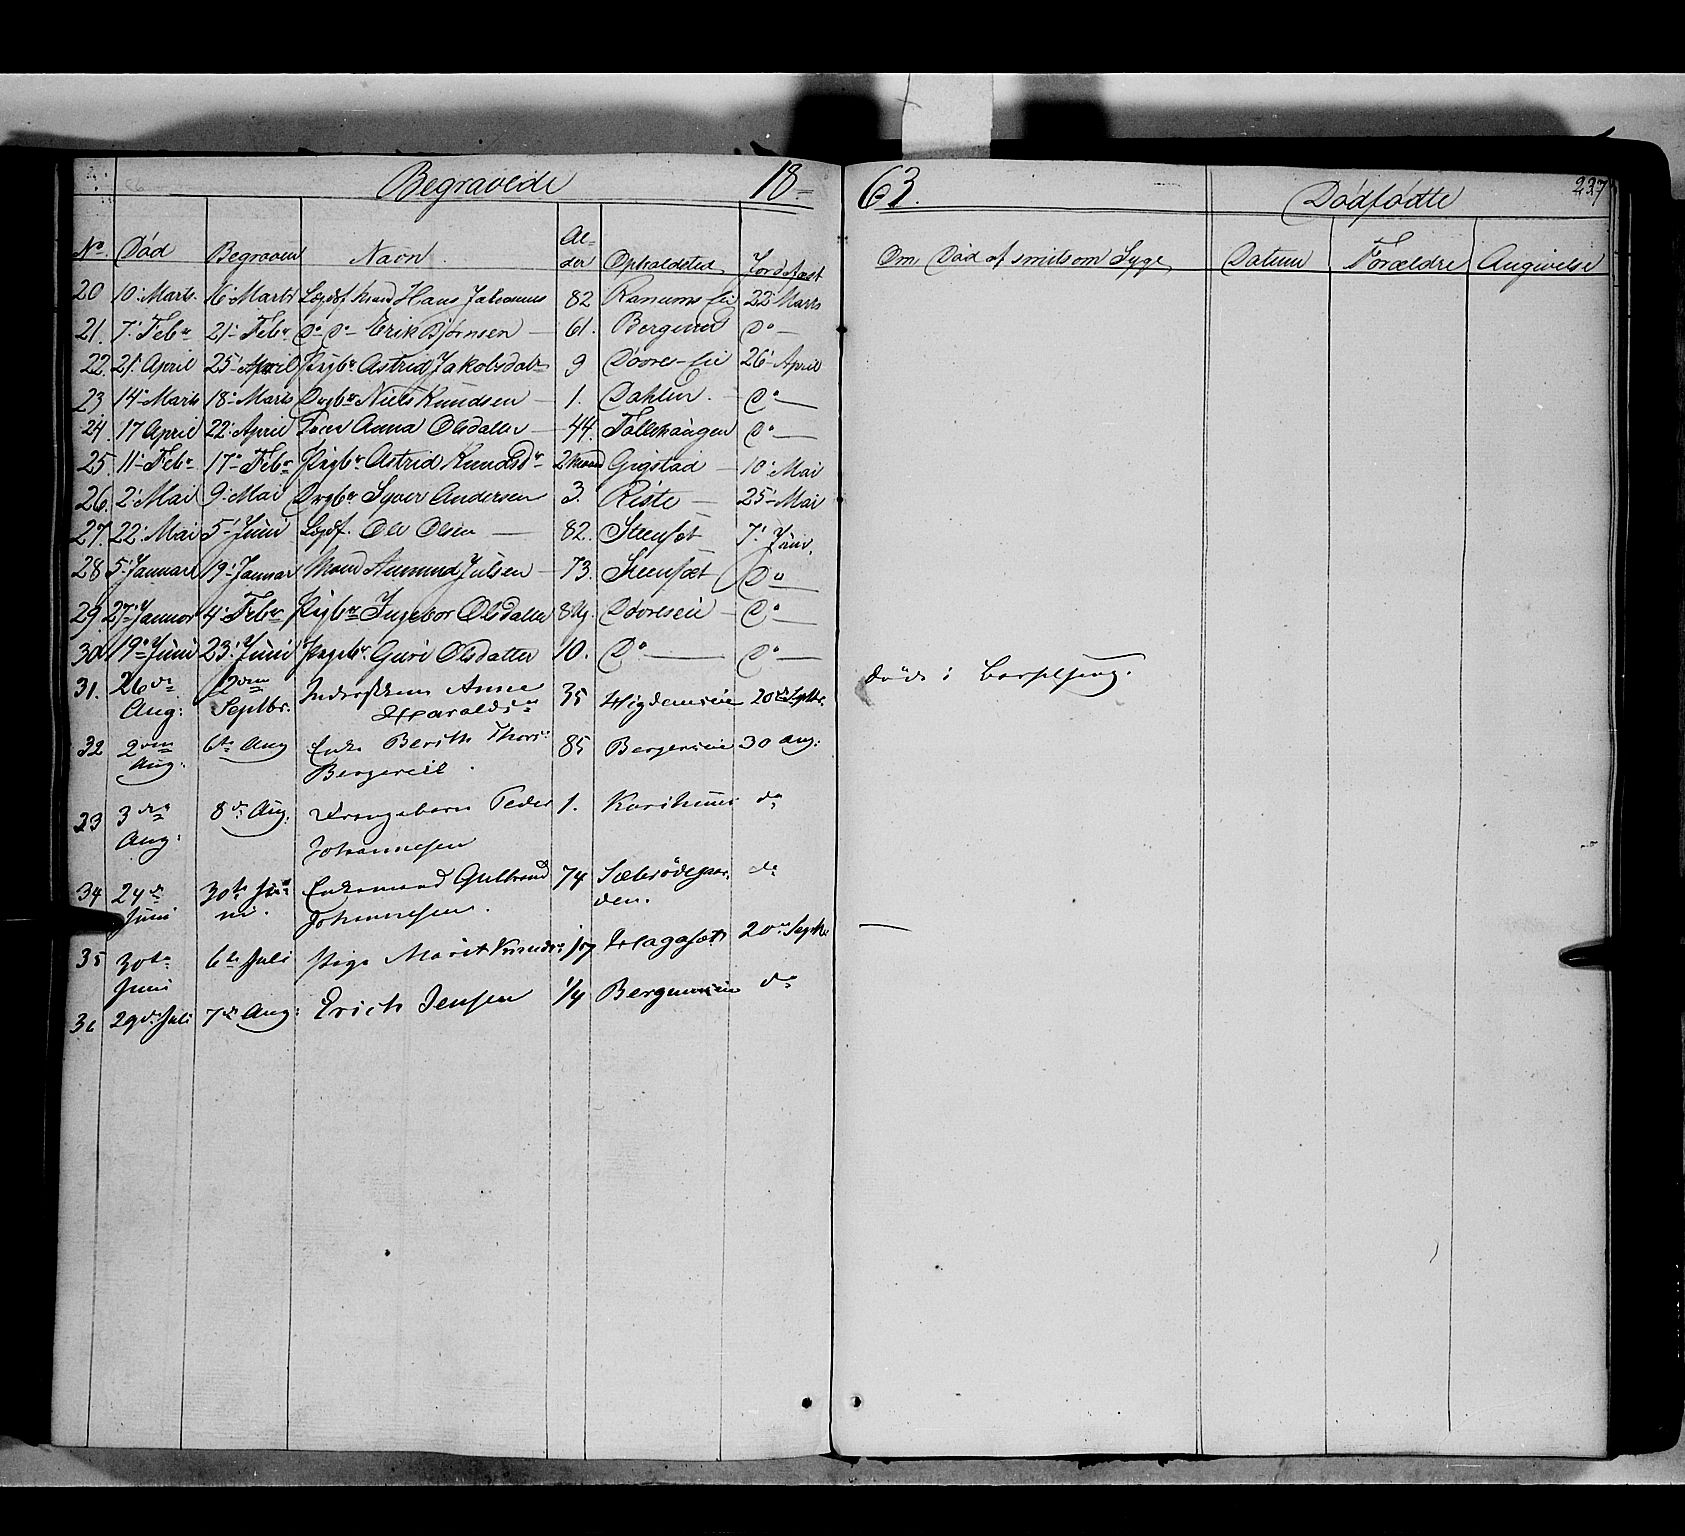 Begravede 18
63.
Dødfødte
227
No. Død Begraven Navn. Al-der Opholdsted Jordfæst
Om Død af smitsom Syge Datum Forældre Angivelse
20 10. Marts 16. Marts Lægdsf. Mand Hans Johannes 82 Ranums Eie 22 Marts
21. 7. Febr 21. Febr Do Do Erik Bjørnsen 61. Bergerud Do
22. 21. April 25. April Pigbr Astrid Jakobsdatr 9 Doores Eie 26. April
23 14. Marts 18. Marts Drgbr Niels Knudsen 1. Dahlen Do
24. 17 April 22. April Anna Olsdatter 44. Follehaugen Do
25. 11. Febr 17. Febr Pigbr Astrid Knudsdr 2 Maand Gigstad 10. Mai
26. 2. Mai 9. Mai Drgbr Syver Andersen 3. Riste 25. Mai
27. 22. Mai 5. Juni Lægdsf. Ole Olsen 82. Steensæt 7. Juni.
28 5. Januar 19. Januar Mand Amund Julsen 73. Steensæt Do
29. 27. Januar 4. Febr Pigbr Ingebor Olsdatter Dooreseie Do
30. 19. Juni 23. Juni Pigebr. Guri Olsdatter 10. Do Do
31. 26de Aug: 2den Septbr. Anne
Haraldsdr 35 20de Septbr. døde i Barselseng.
32 2den Aug. 6te Aug Enke Berith Thors
Bergereie. 85 Bergereie 30 Aug:
33 3die Aug: 8de Aug. Drengebarn Peder
Johannesen 1. do
34 24de Juni 30te Juni. Enkemand Gulbrand
Johannesen. 74 Sæbrødegaarden. do
35 30te Juni 6te Juli Pige Marit Knudsdr Hagasæt 20de Septbr
36 29de Juli 7de Aug: Erich Jensen 1/4 do